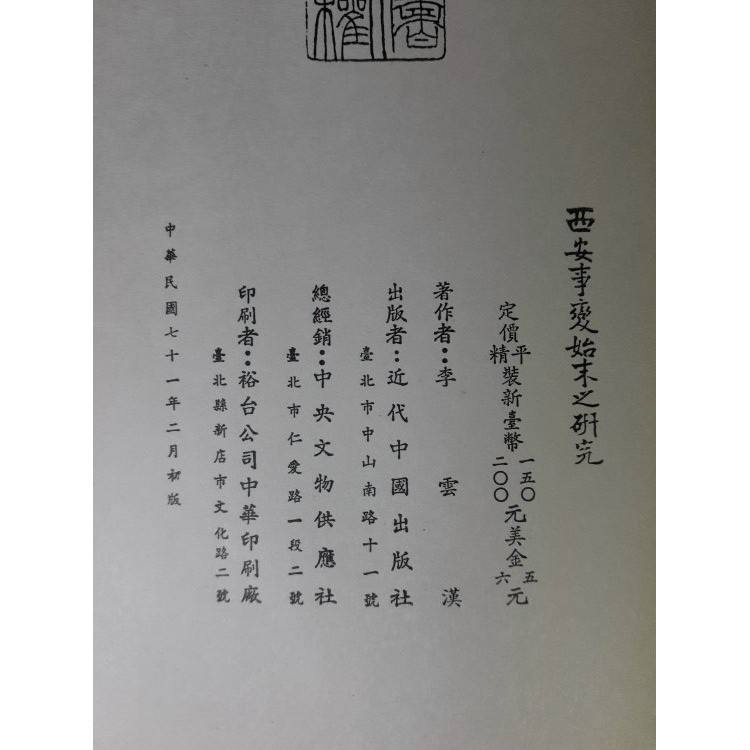 西安事變始末之研究
定價平裝新臺幣一五〇元美金五元
精二〇〇六
著作者：李雲漢
出版者：近代中國出版社
臺北市中山南路十一號
總經銷：中央文物供應社
臺北市仁愛路一段二號
印刷者：裕台公司中華印刷廠
臺北縣新店市文化路二號
中華民國七十一年二月初版